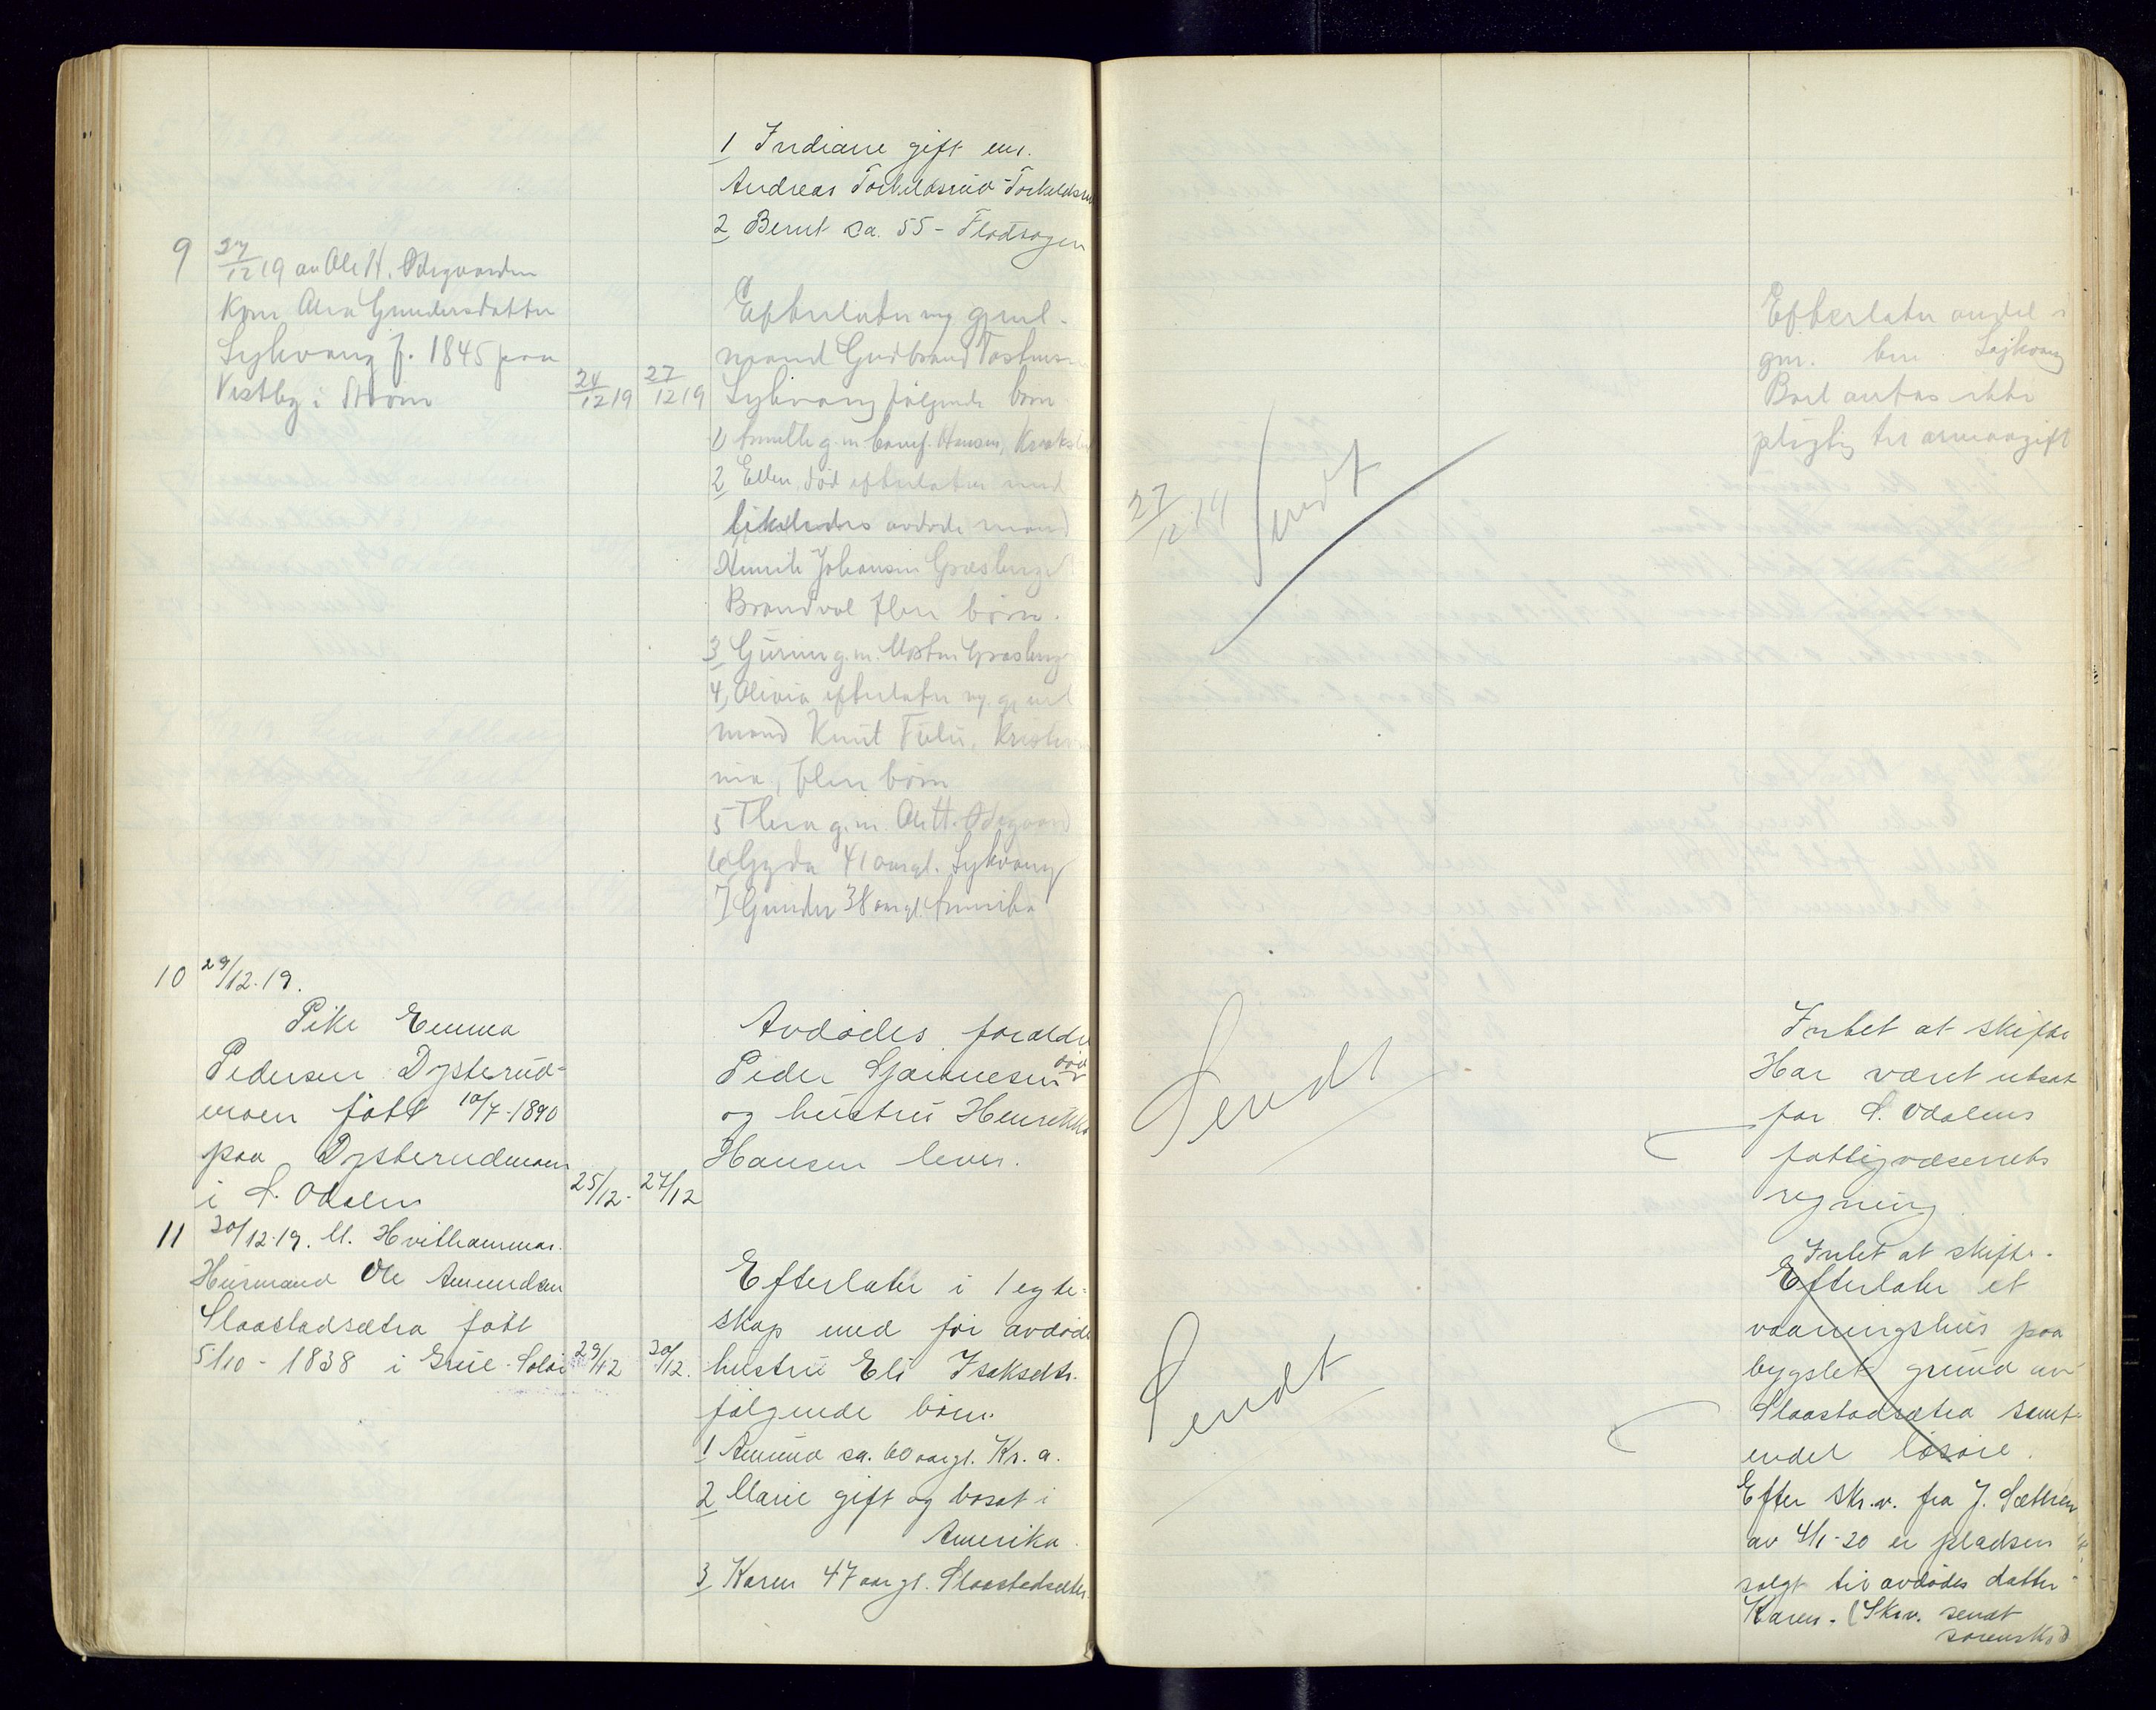 1 Indiane gift em.
Andreas Torkildsrud Torkildsru
2 Bernt ca. 55 - Flodsagen
9
27/12 19 av Ole H. Ødegaarden
Kone Alia Gundersdatter
Sykvang f. 1845 paa
Vestby i Strøm
24/12 19
27/12 19
Efterlater og gjenl.
mand Gudbrand
Sykvang følgende børn
1) g.m. Hansen,
2 Ellen, død efterlater med
likeledes avdøde mand
Henrik Johansen Græsberget
Brandval flere børn.
3 g.m. Græsberg
4, Olivia efterlater og gjenl
mand Knut Kristia
nia, flere børn
5 Thea g.m. Ole H. Ødegaard
6 Gyda 41 aar gl. Sykvang
7) Gunder 38 aar gl. Amerika
27/12.19 Sendt
Efterlater andel i
gnr. bnr. Sykvang
Boet antas ikke
pligtig til arveavgift
10
29/12.19.
Pike Emma
Pedersen Dysterud-
moen født 10/7-1890
paa Dysterudmoen
i S. Odalen
25/12.
27/12
Avdødes foreldre
Peder død
og hustru Henrikke
Hansen lever.
Sendt
Intet at skifte
Har været utsat
for S. Odalens
fattigvæsenets
regning
11
30/12.19. M. Hvithammar.
Husmand Ole Amundsen
Slaastadsætra født
5/10 - 1838 i Grue - Solør
29/12
30/12.
Efterlater i 1 egte-
skap med før avdøde
hustru Eli Isaksdtr.
følgende børn.
1 Amund ca. 60 aar gl. Kr. a.
2 Marie gift og bosat i
Amerika.
3 Karen 47 aar gl. Slaastadsæter
Sendt
Intet at skifte.
Efterlater et
vaaningshus paa
bygslet grund av
Slaastadsætra samt
endel løsøre.
Efter skr.v. fra J. Sætren
av 4/1-20 er pladsen
solgt til avdødes datter
Karen. (Skrv. sendt
sorensk.)